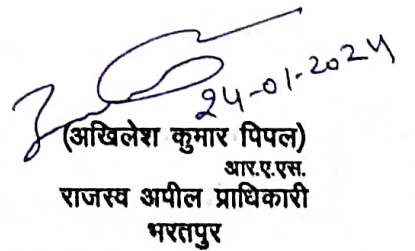 24-01-2024
(अखिलेश कुमार पिपल)
आर.ए.एस.
राजस्व अपील प्राधिकारी
भरतपुर